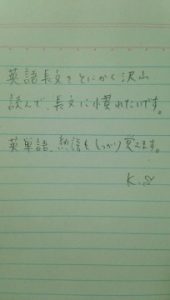 英語長文をとにかく沢山
読んで、長文に慣れたいです。
英単語、熟語もしっかり覚えます。
K.S